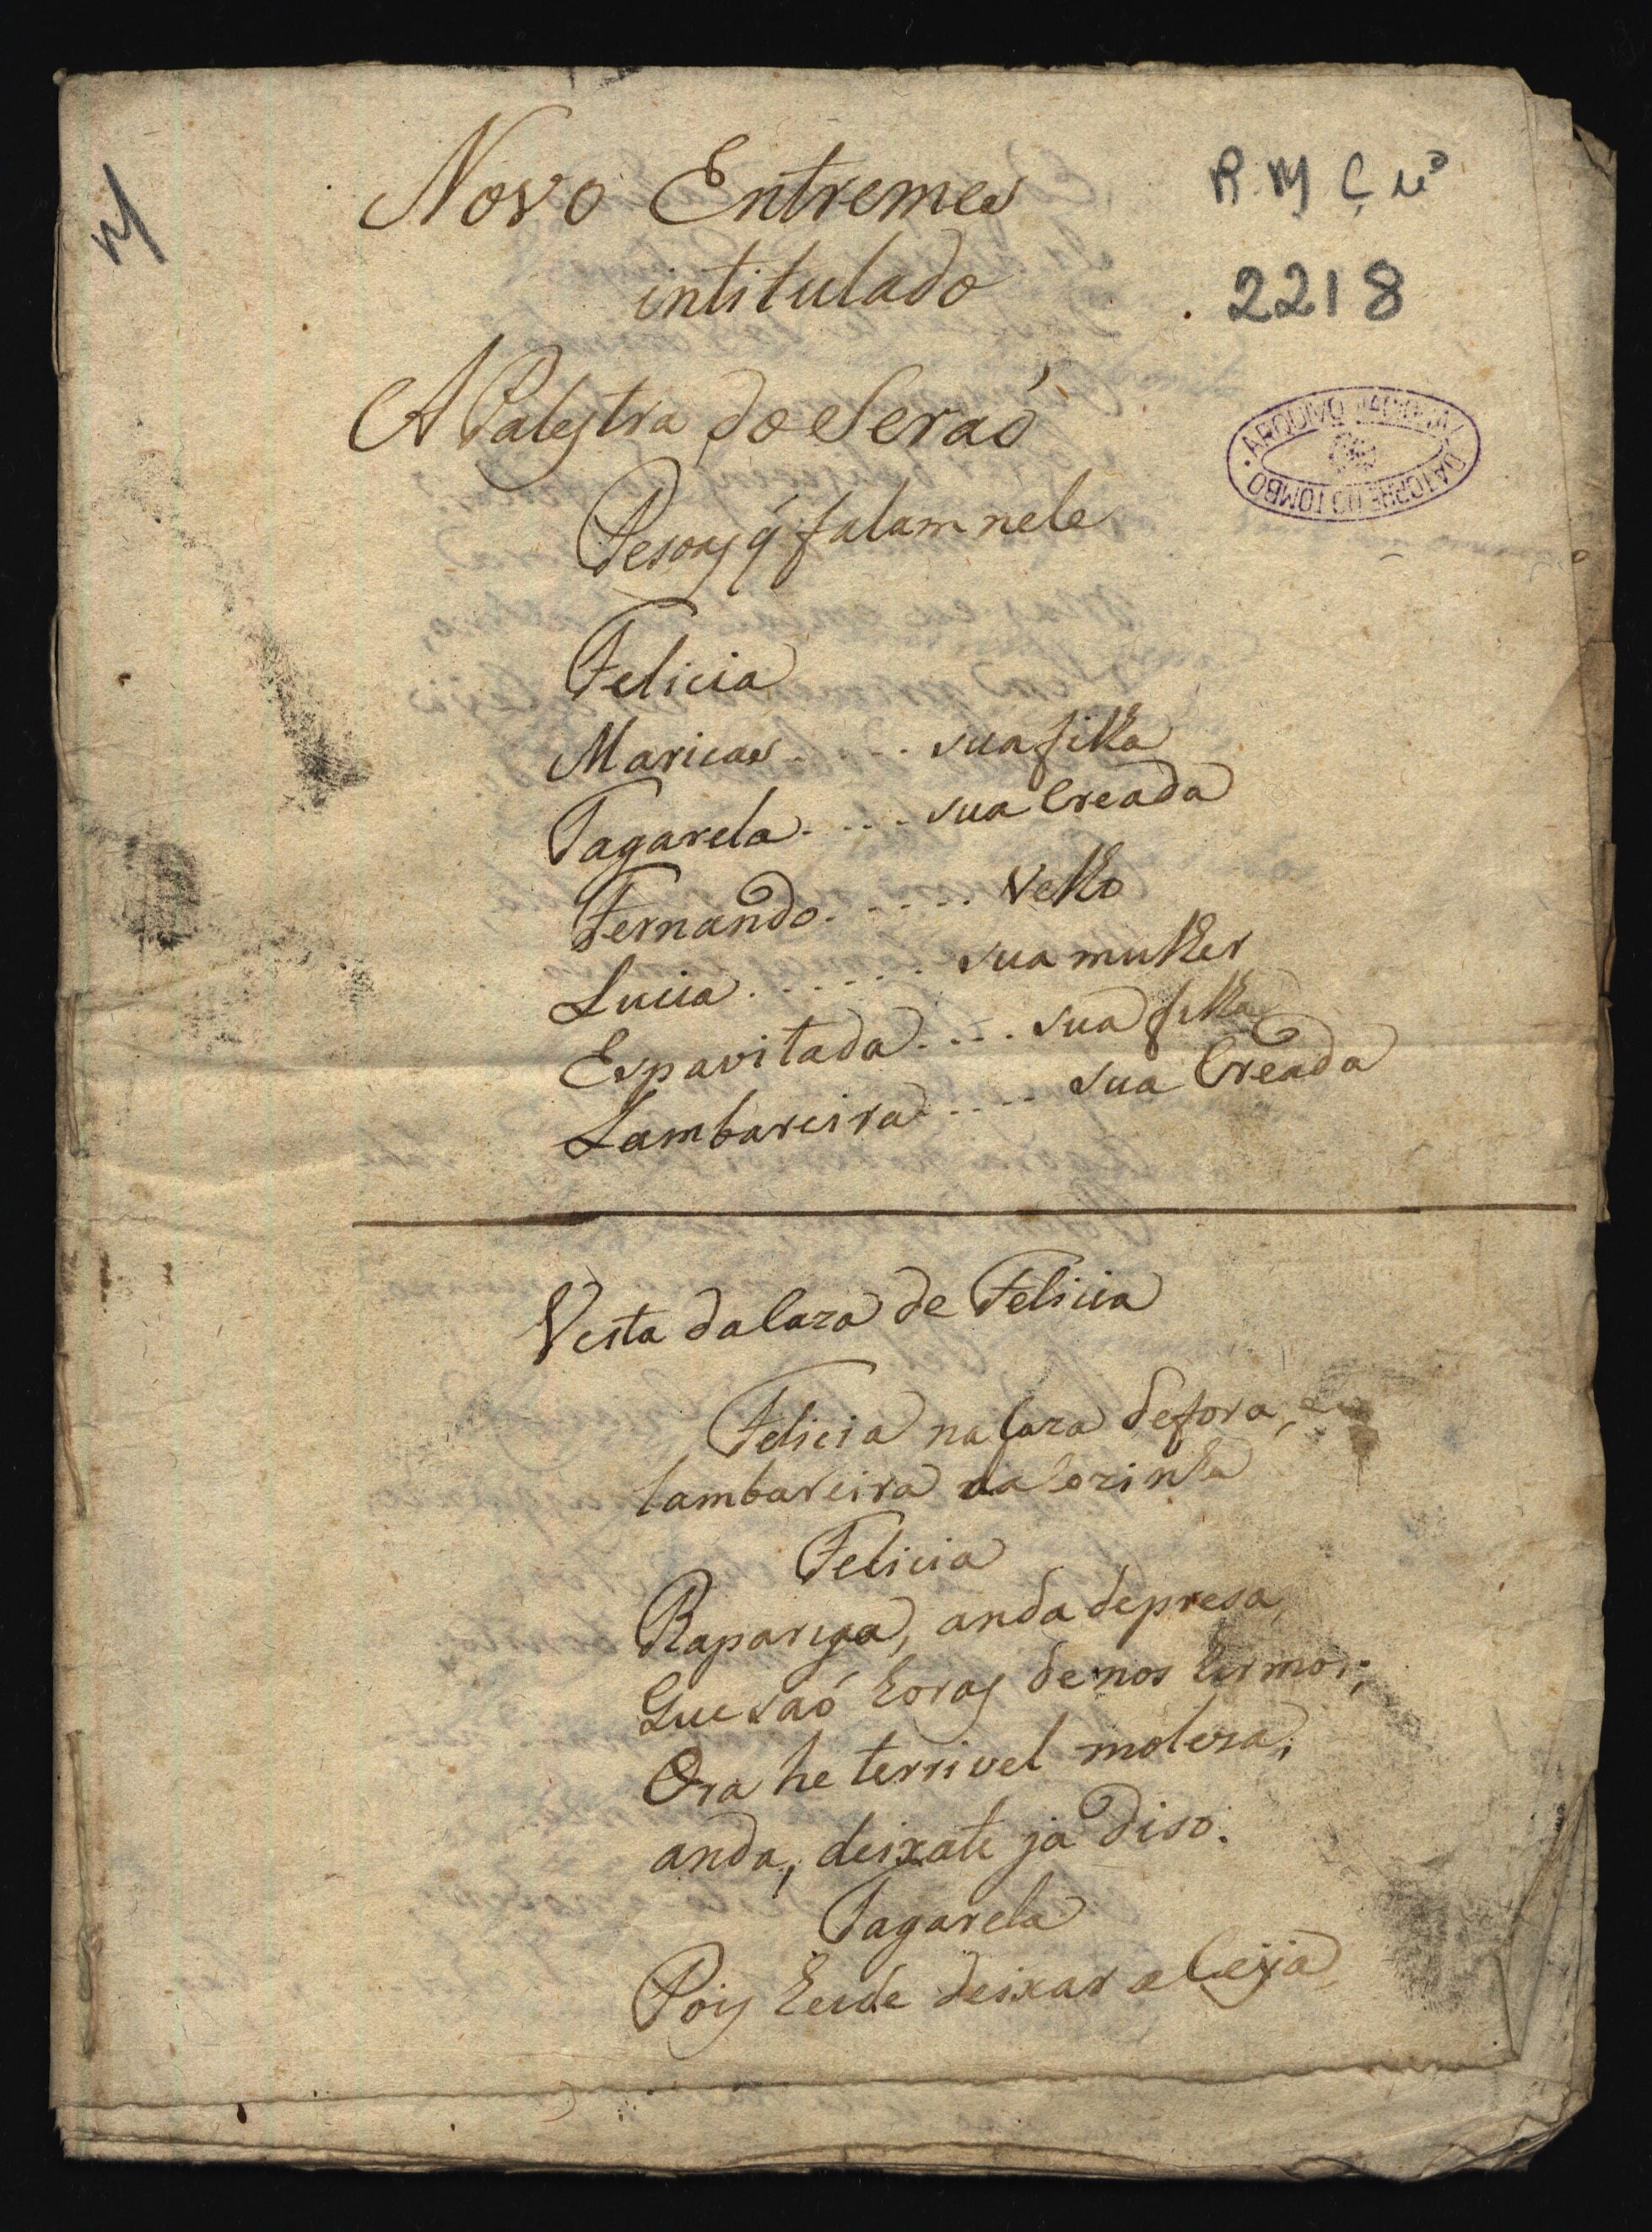 Novo Entremes
R. M Ç Nº
M
intitulado
2218
A Palestra do Seraó
ARQUIVO NACIONAL DA TORRE DO TOMBO
Pesoas q̃ falam nele
Felicia
Maricas . . . . . sua filha
Tagarela . . . . sua Creada
Fernando . . . . . Velho
Lucia . . . . . . sua mulher
Espavitada . . . . sua filha
Lambareira . . . . sua Creada
Vista da Caza de Felicia
Felicia na Caza de fora, e
lambareira na Cozinha
Felicia
Rapariga, anda depresa,
Que saó horas de nos hirmos;
Ora he terrivel moleza,
anda, deixate ja diso.
Tagarela
Pois heide deixar a Ceya